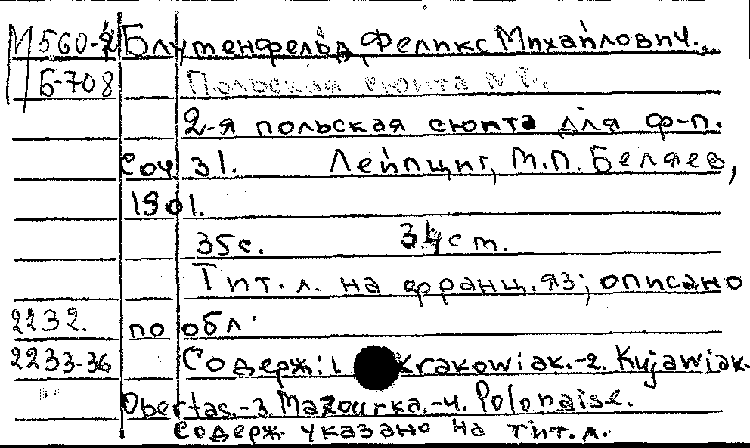 М 560-2 Блуменфельд, Феликс Михайлович...
Б-708 Польская сюита №2.
2-я польская сюита для ф-п.
Соч 31. Лейпциг, М.П. Беляев,
1901.
35с. 34см.
Тит. л. на франц. яз; описано
2232. по обл.
2233-36 Содерж: 1 Krakowiak.-2. Kujawiak.
Obertas.-3. Mazourka.-4. Polonaise.
Содерж указано на тит. л.